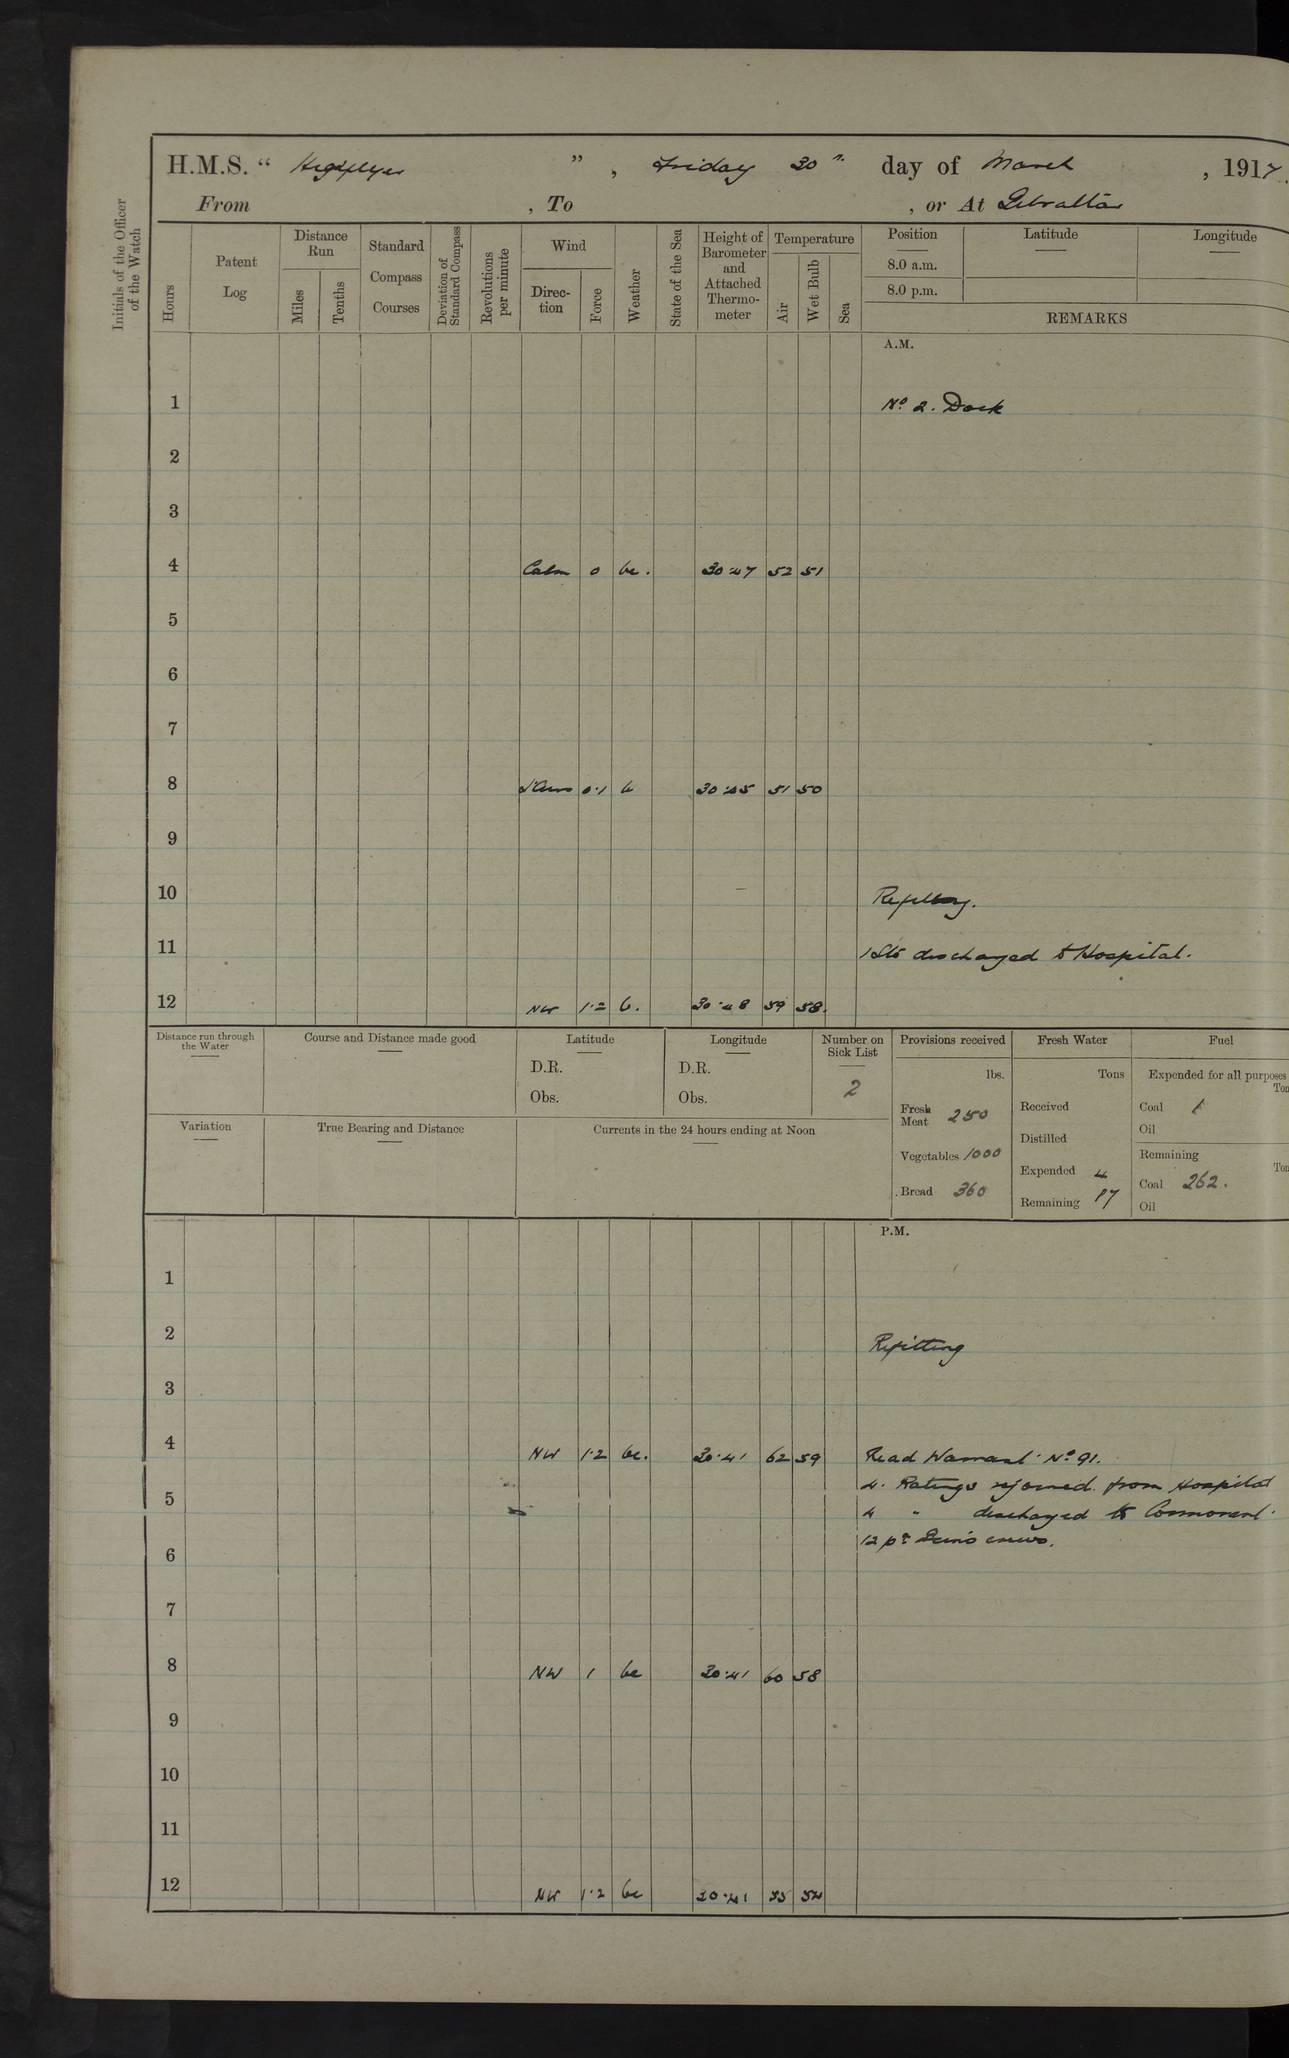 H.M.S. “ Highflyer ”, Friday 30th day of March, 1917.
From , To , or At Gibraltar
Initials of the Officer of the Watch
Hours
Patent Log
Distance Run
Miles
Tenths
Standard Compass Courses
Deviation of Standard Compass
Revolutions per minute
Wind
Direc-tion
Force
Weather
State of the Sea
Height of Barometer and Attached Thermo-meter
Temperature
Air
Wet Bulb
Sea
Position
8.0 a.m.
8.0 p.m.
Latitude
Longitude
REMARKS
A.M.
1 No 2. Dock
2
3
4 Calm 0 bc. 30.47 52 51
5
6
7
8 0.1 b 30.45 51 50
9
10 Refitting.
11 discharged to Hospital.
12 NW 1.2 b. 30.48 59 58.
Distance run through the Water
Course and Distance made good
Latitude
D.R.
Obs.
Longitude
D.R.
Obs.
Number on Sick List
2
Provisions received
lbs.
Fresh Meat 250
Vegetables 1000
Bread 360
Fresh Water
Tons
Received
Distilled
Expended 4
Remaining 97
Fuel
Expended for all purposes
Ton
Coal
Oil
Remaining
Ton
Coal 262.
Oil
Variation
True Bearing and Distance
Currents in the 24 hours ending at Noon
P.M.
1
2 Refitting
3
4 NW 1.2 bc. 30.41 62 59 Read Warrant No 91.
4. Ratings rejoined from Hospital
5
4 " discharged to Cormorant.
12 crews.
6
7
8 NW 1 bc 30.41 60 58
9
10
11
12 NW 1.2 bc 30.41 55 54